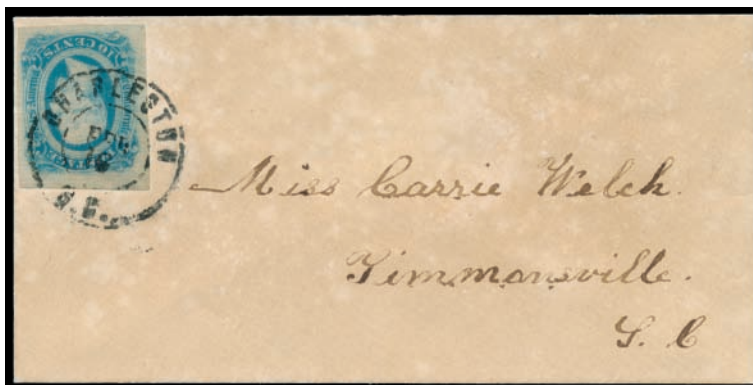 10 CENTS
CHARLESTON
S.C.
Miss Carrie Welch.
Timmonsville.
S. C